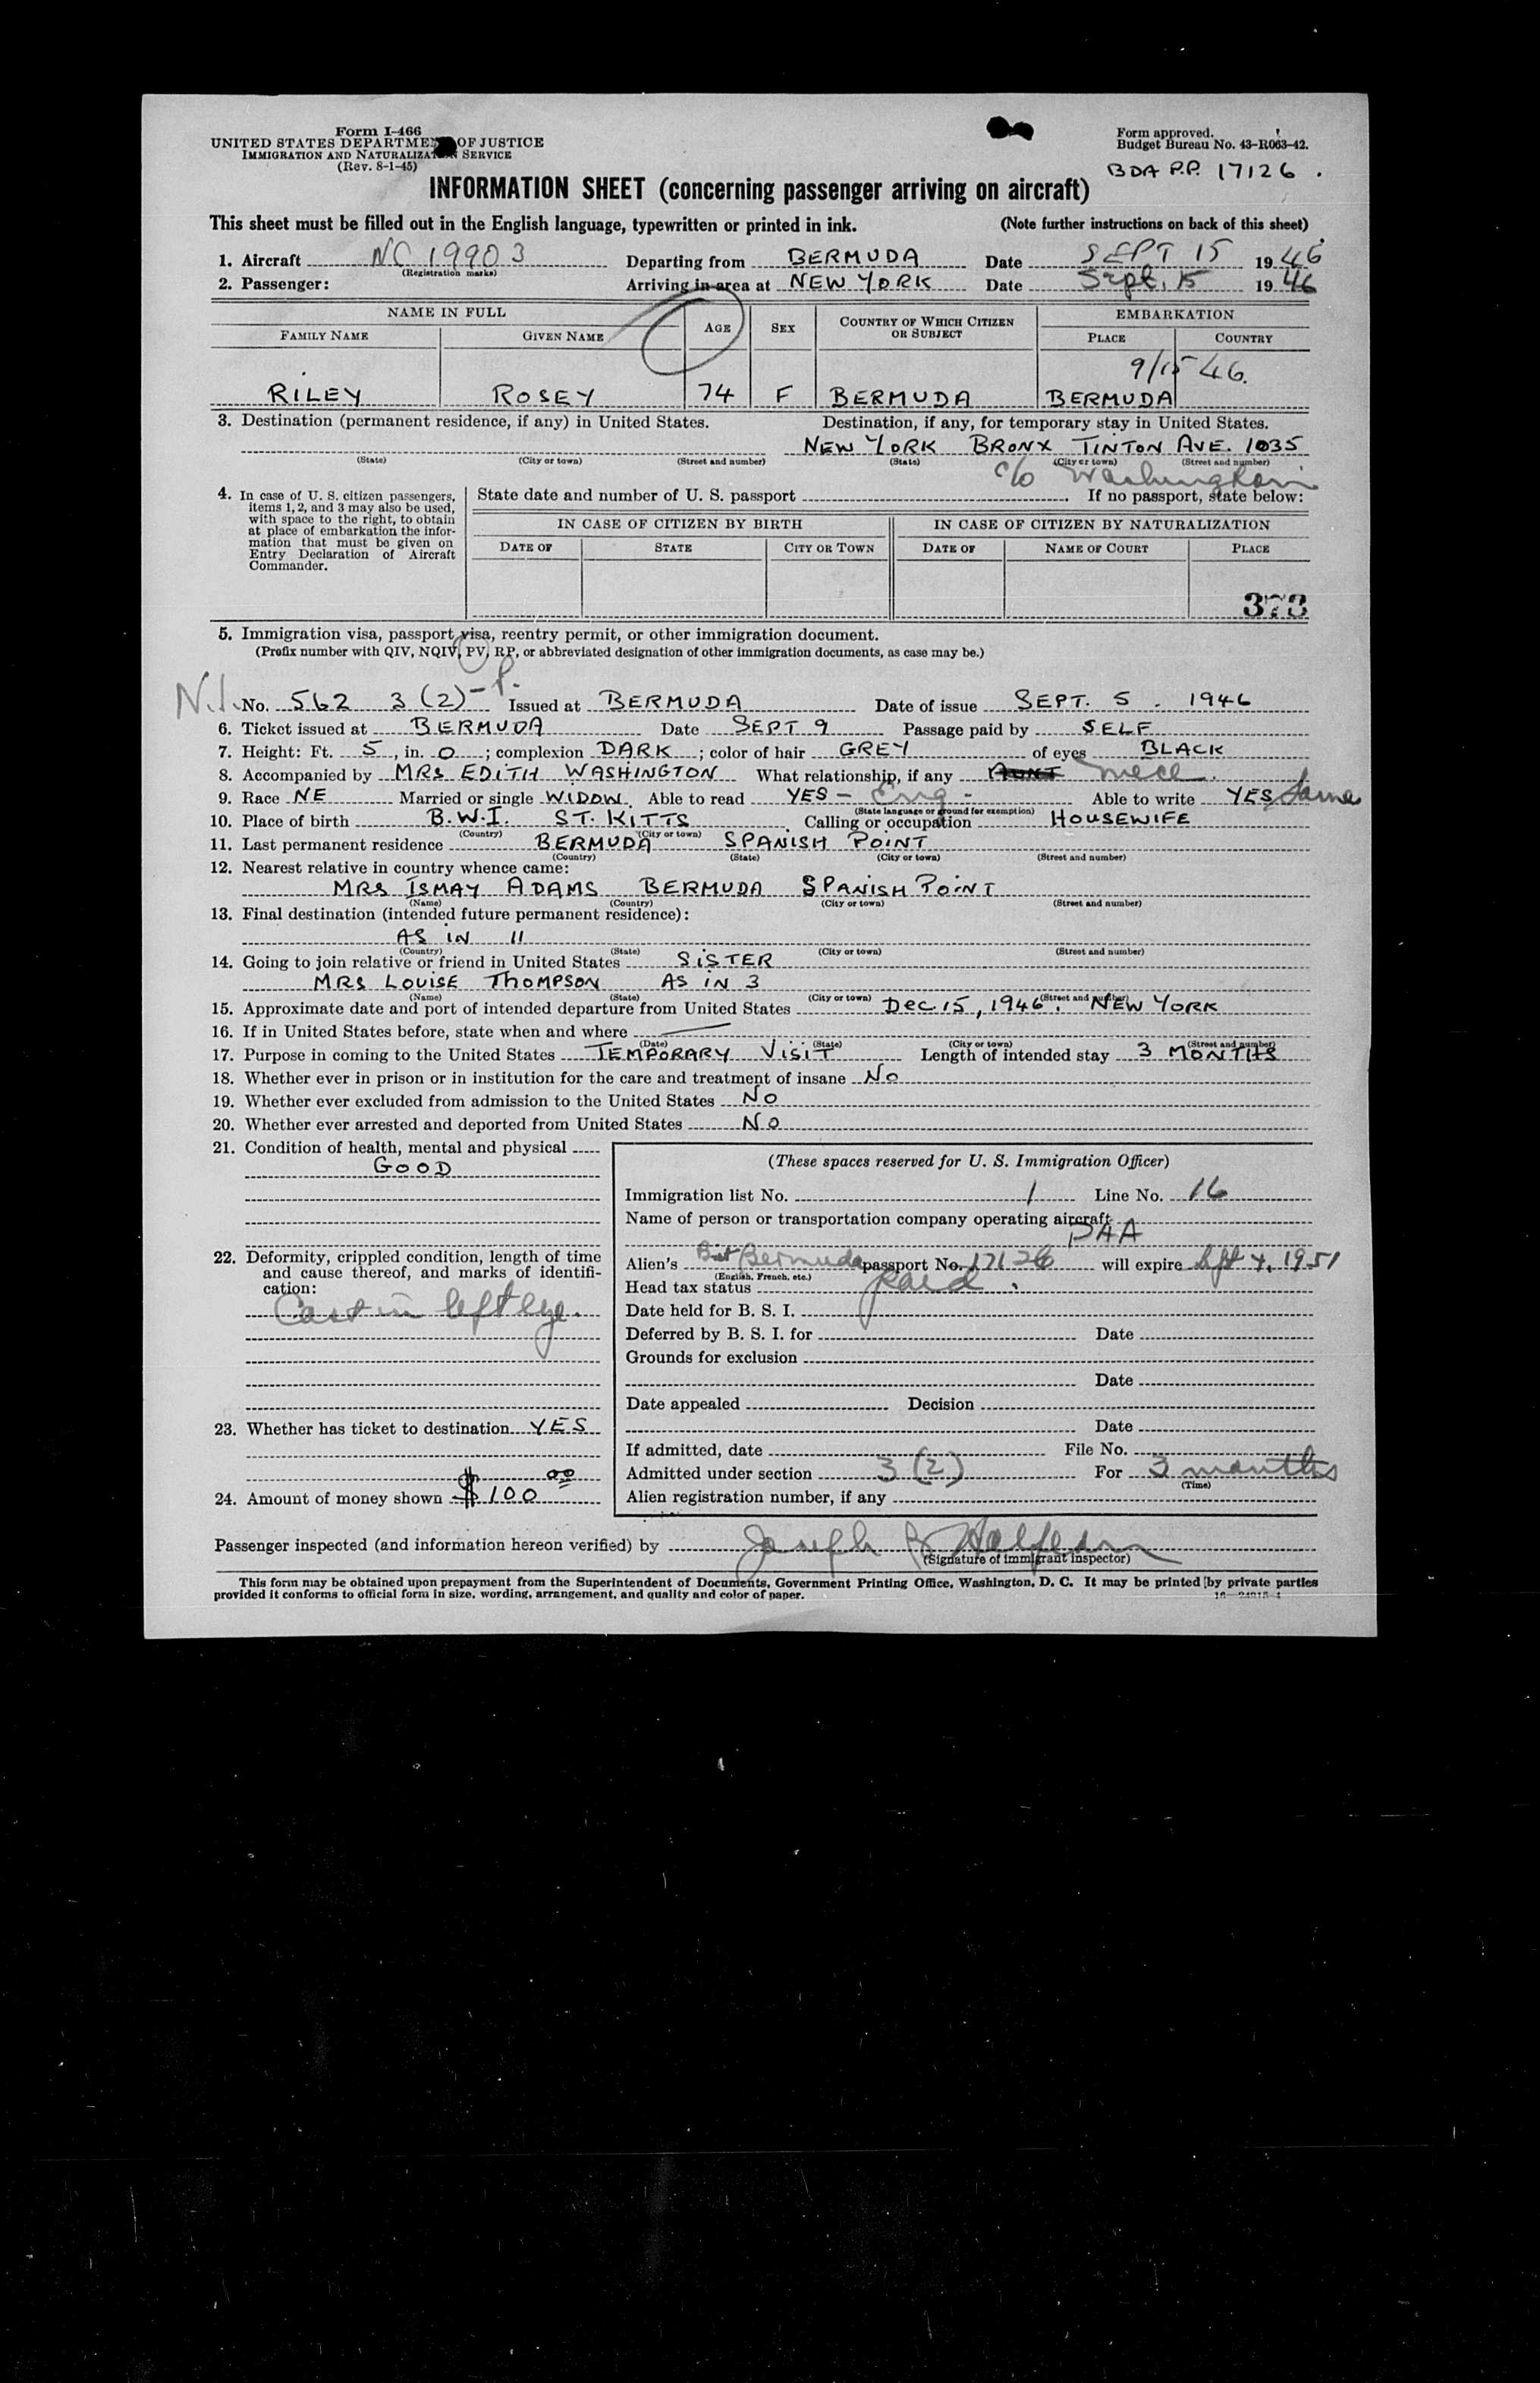 Form I-466
UNITED STATES DEPARTMENT OF JUSTICE
IMMIGRATION AND NATURALIZATION SERVICE
(Rev. 8-1-45)
Form approved.
Budget Bureau No. 43-R063-42.
BDA P.P. 17126 .
INFORMATION SHEET (concerning passenger arriving on aircraft)
This sheet must be filled out in the English language, typewritten or printed in ink. (Note further instructions on back of this sheet)
1. Aircraft NC 19903 Departing from BERMUDA Date SEPT 15 1946
(Registration marks)
2. Passenger: Arriving in area at NEW YORK Date Sept. 15 1946
NAME IN FULL AGE SEX COUNTRY OF WHICH CITIZEN OR SUBJECT EMBARKATION
FAMILY NAME GIVEN NAME PLACE COUNTRY
9/15 46.
RILEY ROSEY 74 F BERMUDA BERMUDA
3. Destination (permanent residence, if any) in United States. Destination, if any, for temporary stay in United States.
NEW YORK BRONX TINTON AVE. 1035
(State) (City or town) (Street and number) (State) (City or town) (Street and number)
c/o Washington
4. In case of U. S. citizen passengers, items 1, 2, and 3 may also be used, with space to the right, to obtain at place of embarkation the information that must be given on Entry Declaration of Aircraft Commander.
State date and number of U. S. passport . If no passport, state below:
IN CASE OF CITIZEN BY BIRTH IN CASE OF CITIZEN BY NATURALIZATION
DATE OF STATE CITY OR TOWN DATE OF NAME OF COURT PLACE
373
5. Immigration visa, passport visa, reentry permit, or other immigration document.
(Prefix number with QIV, NQIV, PV, RP, or abbreviated designation of other immigration documents, as case may be.)
N.I. No. 562 3 (2) - P. Issued at BERMUDA Date of issue SEPT. 5 . 1946
6. Ticket issued at BERMUDA Date SEPT 9 Passage paid by SELF
7. Height: Ft. 5, in. 0; complexion DARK; color of hair GREY of eyes BLACK
8. Accompanied by MRS EDITH WASHINGTON What relationship, if any AUNT niece.
9. Race NE Married or single WIDOW. Able to read YES - Eng - Able to write YES Same
(State language or ground for exemption)
10. Place of birth B.W.I. ST. KITTS. Calling or occupation HOUSEWIFE
(Country) (City or town)
11. Last permanent residence BERMUDA SPANISH POINT
(Country) (State) (City or town) (Street and number)
12. Nearest relative in country whence came:
MRS ISMAY ADAMS BERMUDA SPANISH POINT
(Name) (Country) (City or town) (Street and number)
13. Final destination (intended future permanent residence):
AS IN 11
(Country) (State) (City or town) (Street and number)
14. Going to join relative or friend in United States SISTER
MRS LOUISE THOMPSON AS IN 3
(Name) (State) (City or town) (Street and number)
15. Approximate date and port of intended departure from United States Dec. 15, 1946. NEW YORK
16. If in United States before, state when and where —
(Date) (State) (City or town) (Street and number)
17. Purpose in coming to the United States TEMPORARY VISIT Length of intended stay 3 MONTHS
18. Whether ever in prison or in institution for the care and treatment of insane No
19. Whether ever excluded from admission to the United States No
20. Whether ever arrested and deported from United States No
21. Condition of health, mental and physical
GOOD
22. Deformity, crippled condition, length of time and cause thereof, and marks of identification:
Cast in left eye.
23. Whether has ticket to destination YES
24. Amount of money shown $100 00
(These spaces reserved for U. S. Immigration Officer)
Immigration list No. 1 Line No. 16
Name of person or transportation company operating aircraft
PAA
Alien's Brit Bermuda passport No. 17126 will expire Sept 4, 1951
(English, French, etc.)
Head tax status Paid .
Date held for B. S. I.
Deferred by B. S. I. for Date
Grounds for exclusion
Date
Date appealed Decision
Date
If admitted, date File No.
Admitted under section 3 (2) For 3 months
(Time)
Alien registration number, if any
Passenger inspected (and information hereon verified) by Joseph
(Signature of immigrant inspector)
This form may be obtained upon prepayment from the Superintendent of Documents, Government Printing Office, Washington, D. C. It may be printed by private parties
provided it conforms to official form in size, wording, arrangement, and quality and color of paper.